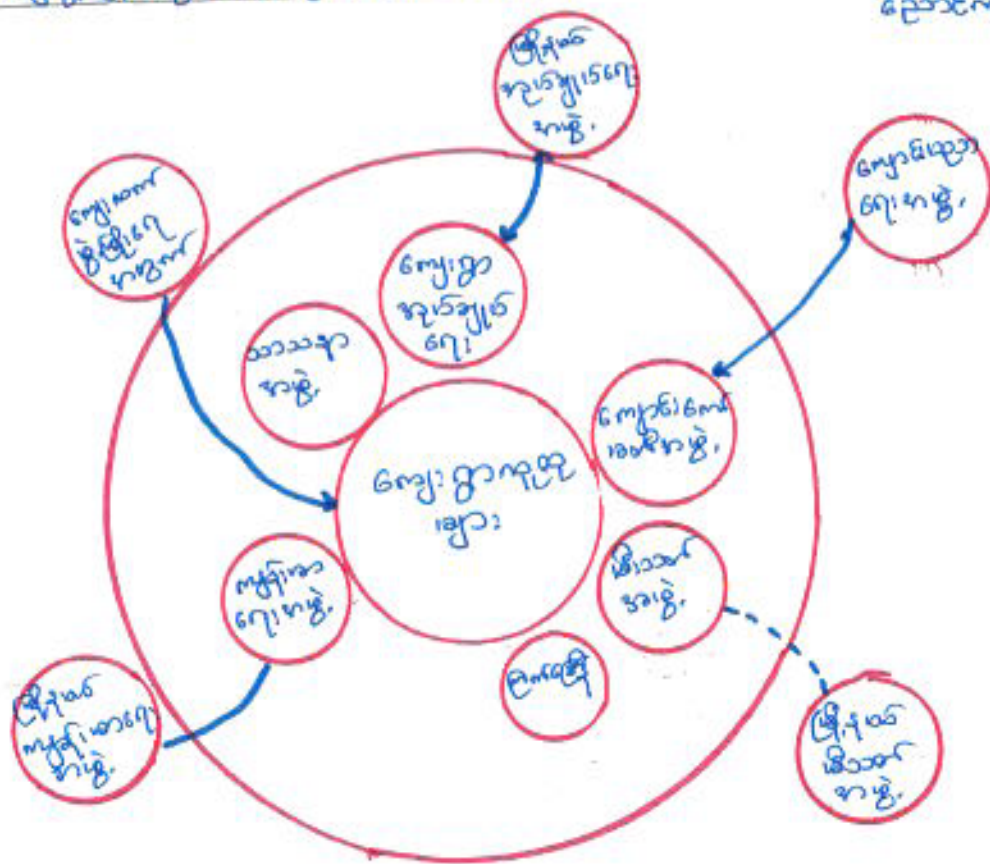 မြို့နယ်
အုပ်ချုပ်ရေး
အဖွဲ့
ကျောင်းပညာ
ရေးအဖွဲ့
ကျေးလက်
ဖွံ့ဖြိုးရေး
ကျေးရွာ
အုပ်ချုပ်
ရေး
သာသနာ
အဖွဲ့
အဖွဲ့
ကျေးရွာလူထု
များ
ကျန်းမာ
ရေးအဖွဲ့
မီးသတ်
အဖွဲ့
ကြက်ခြေနီ
မြို့နယ်
ကျန်းမာရေး
အဖွဲ့
မြို့နယ်
မီးသတ်
အဖွဲ့